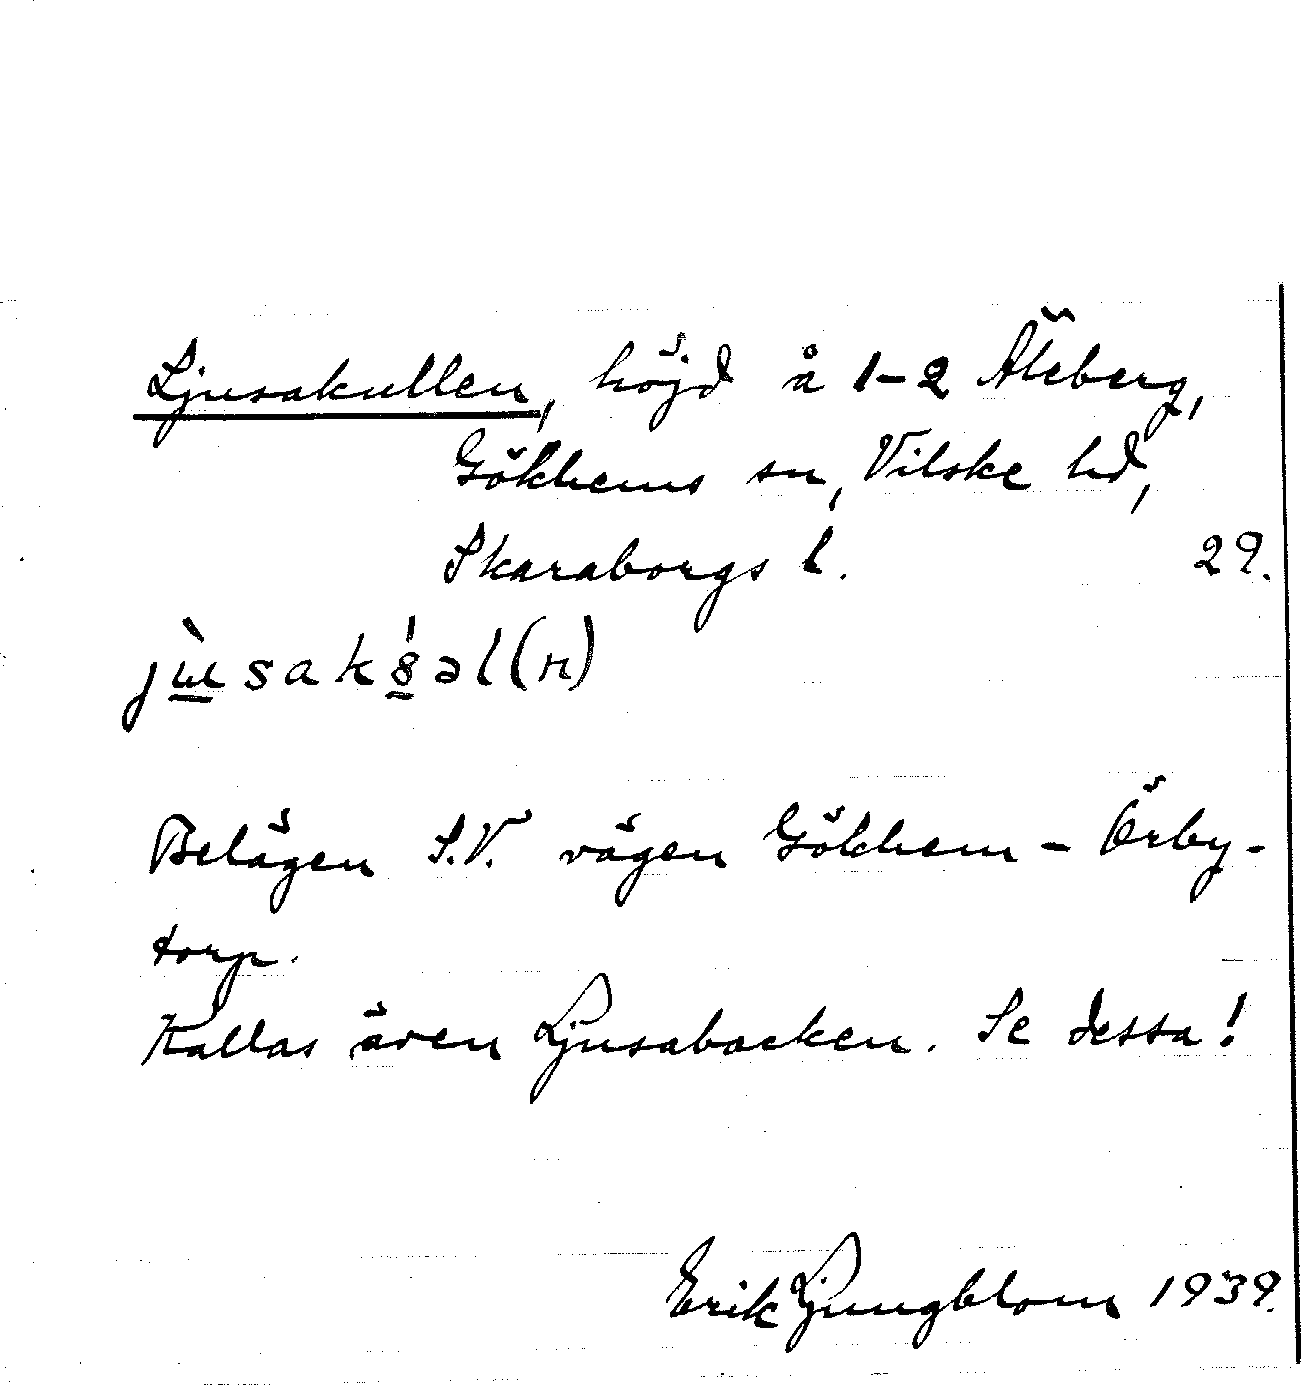 Ljusakullen, höjd å 1-2 Åleberg,
Gökhems sn, Vilske hd,
Skaraborgs l. 29.
Belägen S.V. vägen Gökhem - Örby-
torp.
Kallas även Ljusabacken. Se dessa!
Erik Ljungblom 1939.